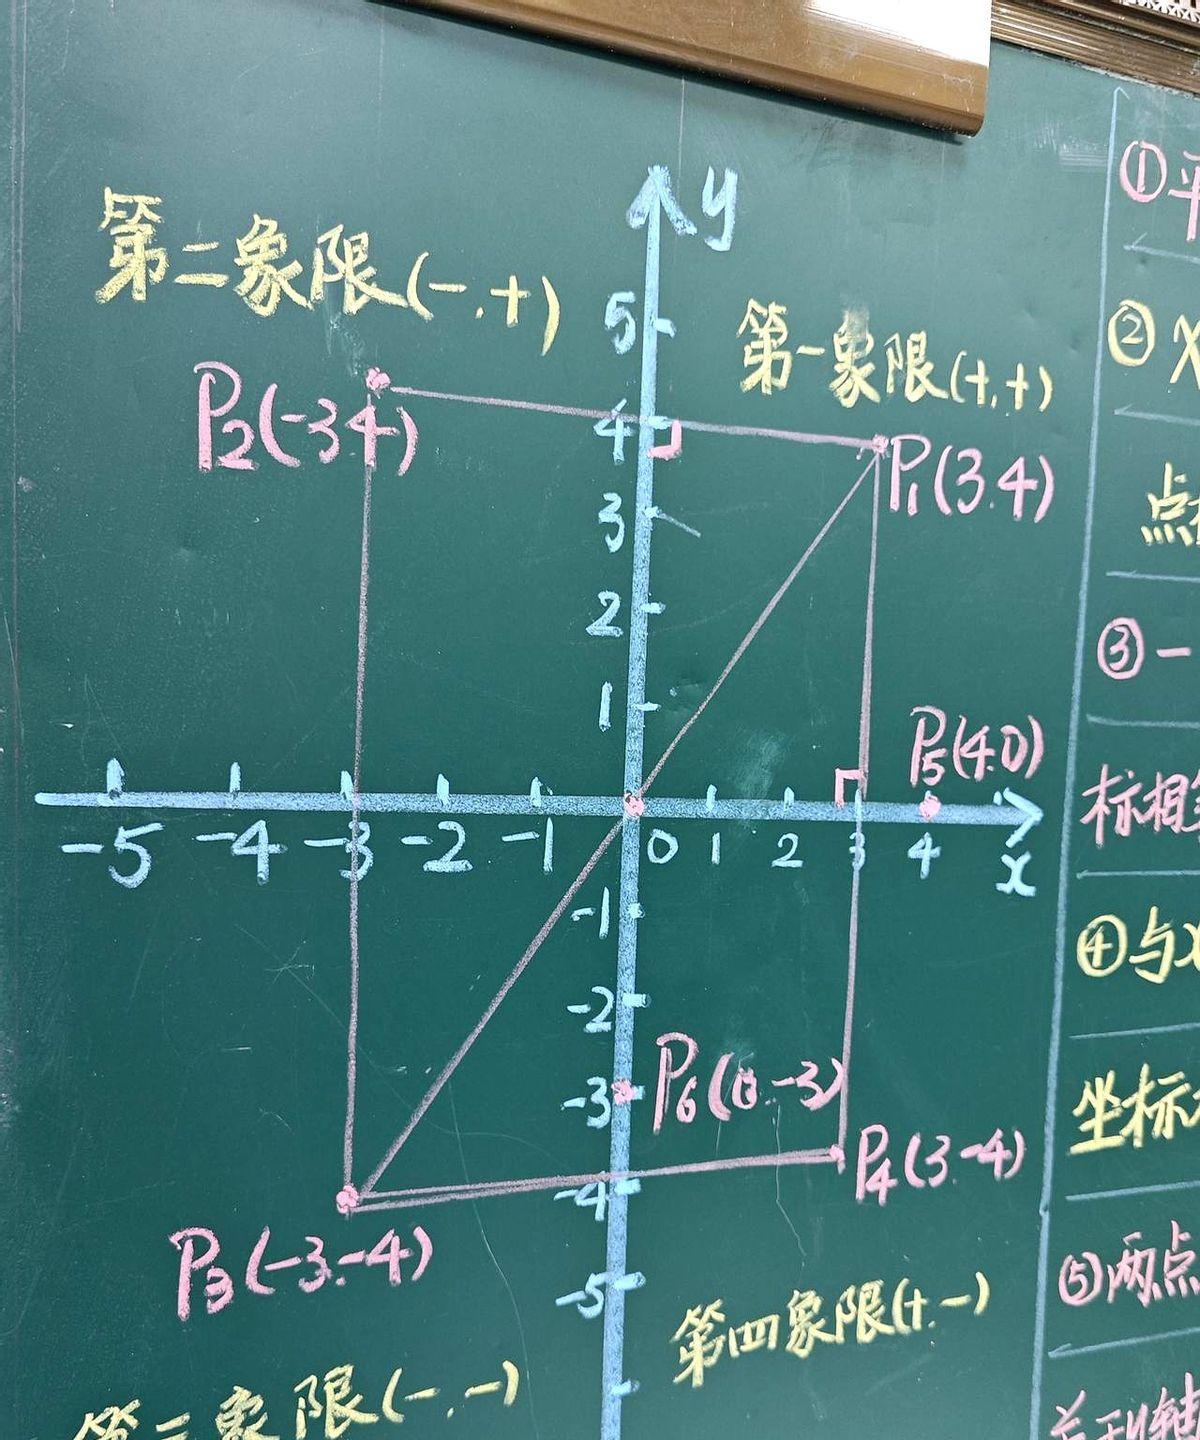 y
第二象限(-,+)
5
第一象限(+,+)
P2(-3 4)
4
P1(3.4)
3
2
1
P5(4.0)
-5 -4 -3 -2 -1 0 1 2 3 4 x
-1
-2
-3
P6(0.-3)
-4
P4(3-4)
P3(-3.-4)
-5
第四象限(+.-)
第三象限(-.-)
①平
②X
点
③一
标相
④与x
坐标
⑤两点